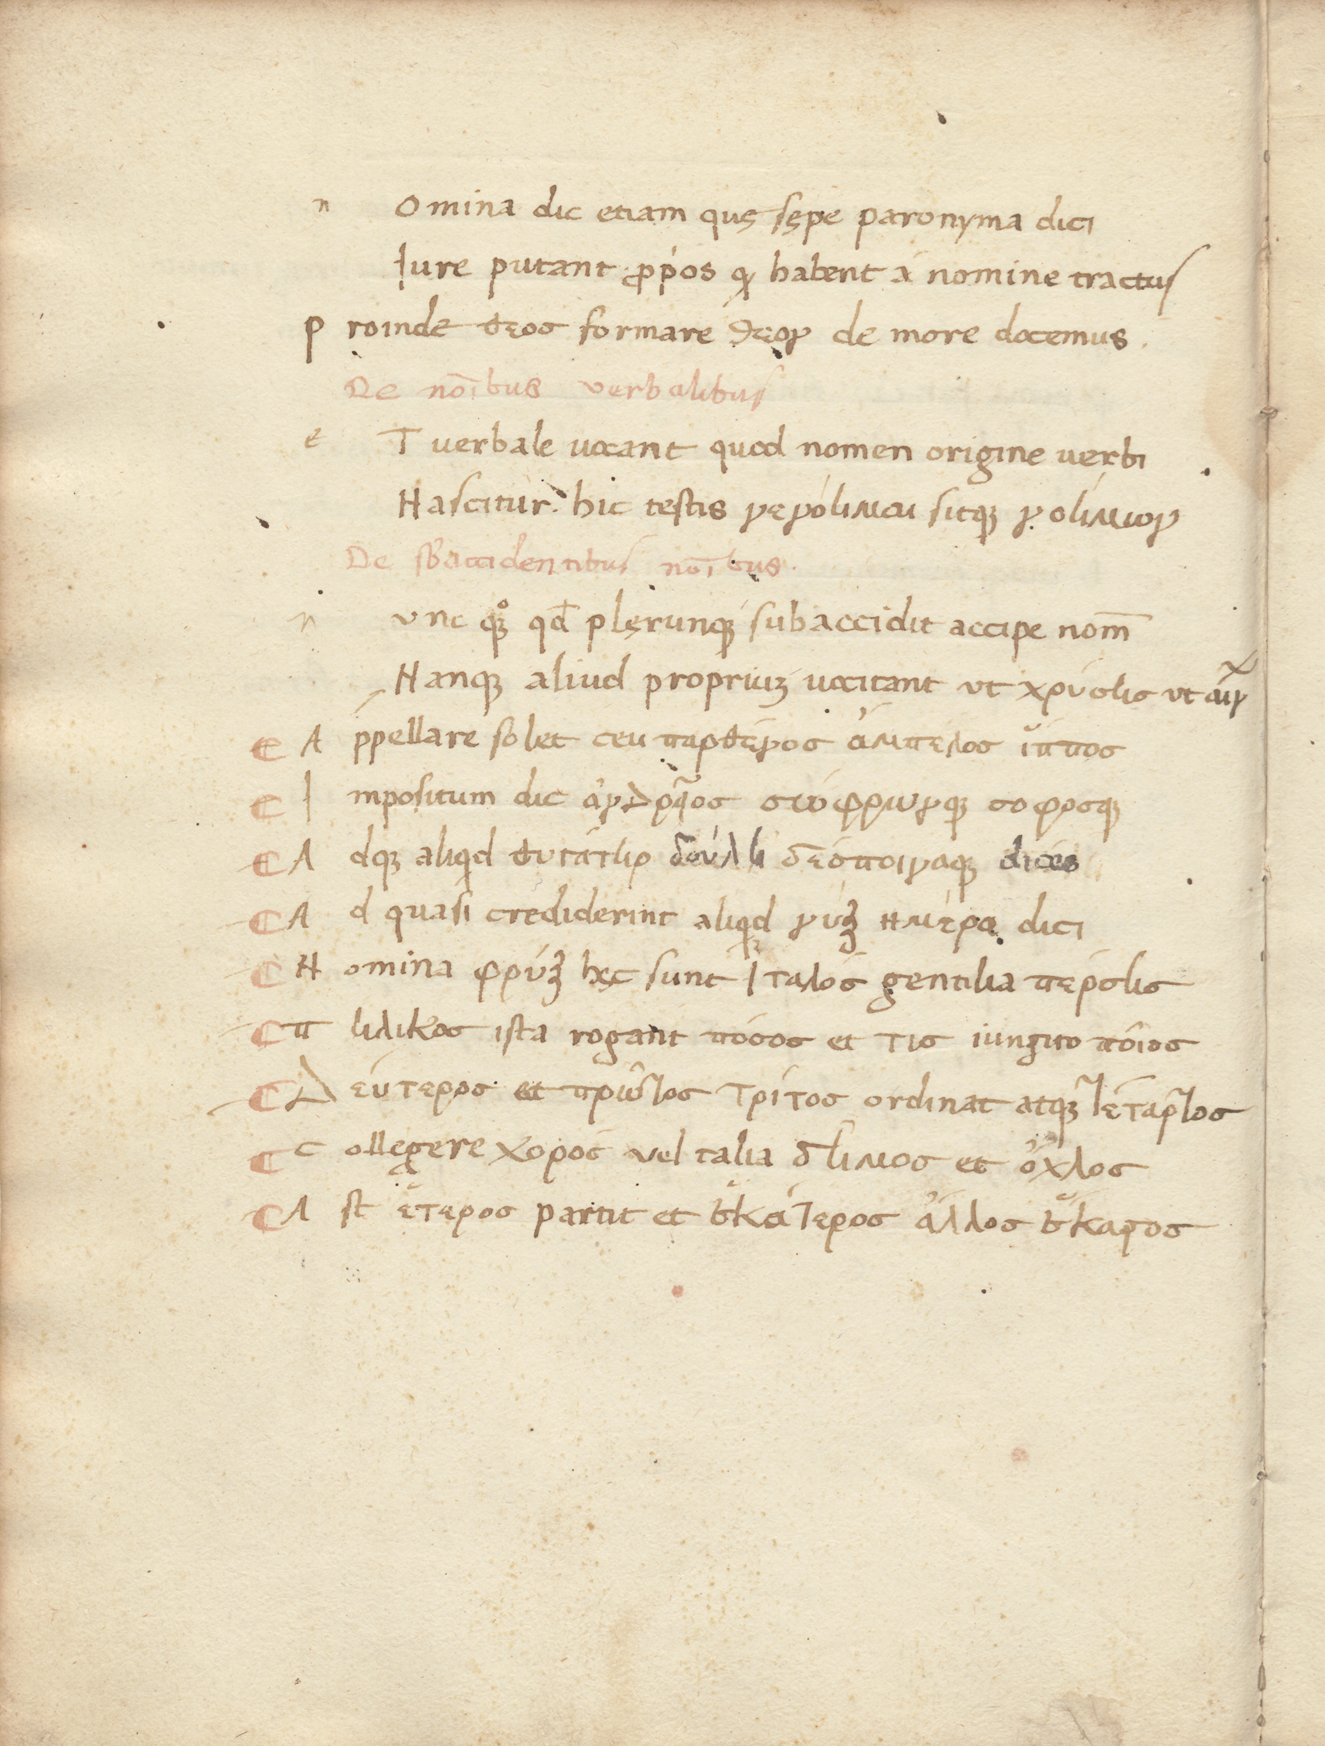 n Omina dic etiam quę sępe paronyma dici
Iure putant ꝓp̄os ꝙ habent à nomine tractus
P roinde θεος formare θεου de more docemus.
De no͞ibus verbalibus
e T verbale vocant quod nomen origine verbi
Nascitur. hic testis νενόημαι sitqꝫ νοήμων
De sb̄accidentibus no͞ibus.
n vnc qꝫͦ qd̄ plęrunqꝫ subaccidit accipe nom̄
Nanqꝫ aliud propriuꝫ uocitant vt χρύσης vt
A ppellare solet ceu παρθένος ἄμπελος ἵππος
I mpositum dic σώφρωνqꝫ σοφοσqꝫ
A dqꝫ aliqͥd θυγάτηρ δούλη δεσποιναqꝫ dices
A d quasi crediderint aliqͥd νύξ ημέρα dici
N omina φρύξ hęc sunt Ἰταλός gentilia πέρσης
π ηλικος ista rogant πόσος et τις iungito ποῖος
Δ εύτερος et πρῶτος τρίτος ordinat atqꝫ τέταρτος
C ollegere χορός vel talia δῆμος et ὄχλος
A st ἕτερος partit et ἑκάτερος ἄλλος ἕκαστος